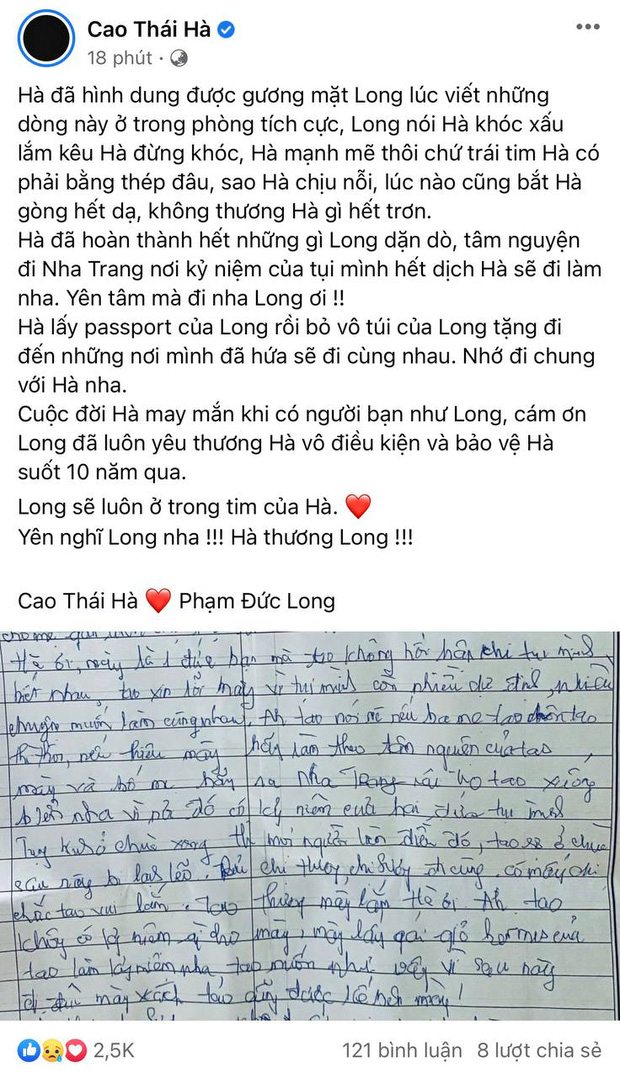 Cao Thái Hà
18 phút ·
Hà đã hình dung được gương mặt Long lúc viết những
dòng này ở trong phòng tích cực, Long nói Hà khóc xấu
lắm kêu Hà đừng khóc, Hà mạnh mẽ thôi chứ trái tim Hà có
phải bằng thép đâu, sao Hà chịu nỗi, lúc nào cũng bắt Hà
gòng hết dạ, không thương Hà gì hết trơn.
Hà đã hoàn thành hết những gì Long dặn dò, tâm nguyện
đi Nha Trang nơi kỷ niệm của tụi mình hết dịch Hà sẽ đi làm
nha. Yên tâm mà đi nha Long ơi !!
Hà lấy passport của Long rồi bỏ vô túi của Long tặng đi
đến những nơi mình đã hứa sẽ đi cùng nhau. Nhớ đi chung
với Hà nha.
Cuộc đời Hà may mắn khi có người bạn như Long, cám ơn
Long đã luôn yêu thương Hà vô điều kiện và bảo vệ Hà
suốt 10 năm qua.
Long sẽ luôn ở trong tim của Hà. ❤️
Yên nghĩ Long nha !!! Hà thương Long !!!
Cao Thái Hà ❤️ Phạm Đức Long
Hà ơi, mày là 1 đứa bạn mà tao không hối hận khi tụi mình
biết nhau, tao xin lỗi mày vì tụi mình còn nhiều dự định nhiều
chuyện muốn làm cùng nhau, nếu ba mẹ tao
hãy làm theo tâm nguyện của tao,
mày và bố mẹ hãy ra Nha Trang rải họ tao xuống
biển nha vì nơi đó có kỷ niệm của hai đứa tụi mình
chùa xong thì mọi người làm điều đó, tao sẽ ở chùa
sau này bị lạnh lẽo. chị Thúy, có mấy chị
chắc tao vui lắm. Tao thương mày lắm Hà ơi. tao
không có kỷ niệm gì cho mày, mày lấy cái giỏ hermes của
tao làm kỷ niệm nha, tao muốn như vậy vì sau này
đi đâu mày xách tao cũng được kế bên mày!
2,5K
121 bình luận 8 lượt chia sẻ